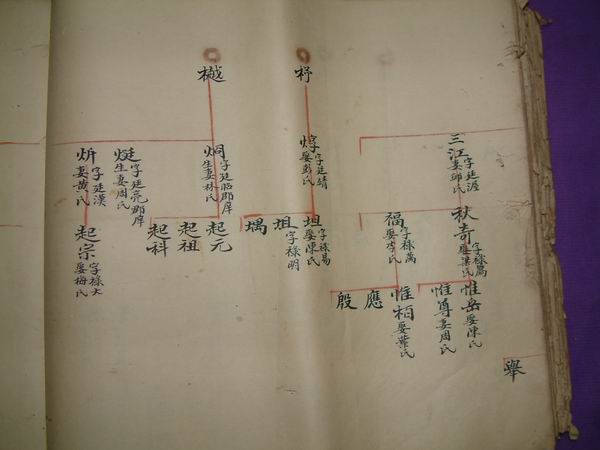 三江
字廷涯
妻邱氏
秋奇
字祿篤
娶梁氏
惟岳
娶陳氏
惟尊
妻周氏
福
字祿萬
娶李氏
惟栢
娶葉氏
應
殷
舉
杍
焞
字廷靖
娶彭氏
坦
字祿易
娶陳氏
坥
字祿明
堣
樾
炯
字廷昭郡庠
生妻林氏
起元
起祖
起科
烶
字廷亮郡庠
生妻周氏
炘
字廷漢
妻黃氏
起宗
字祿大
娶梅氏